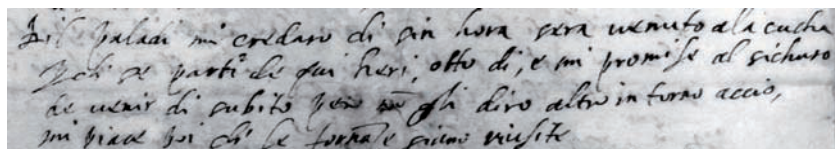 Il paladi mi credaro di sin hora sera venuto ala cucha
p̱ch se parti de qui heri, otto di, e mi promise al sichuro
de venir di subito pero nō gli diro altro in torno accio,
mi piace poi ch le forn̄e siano riusite